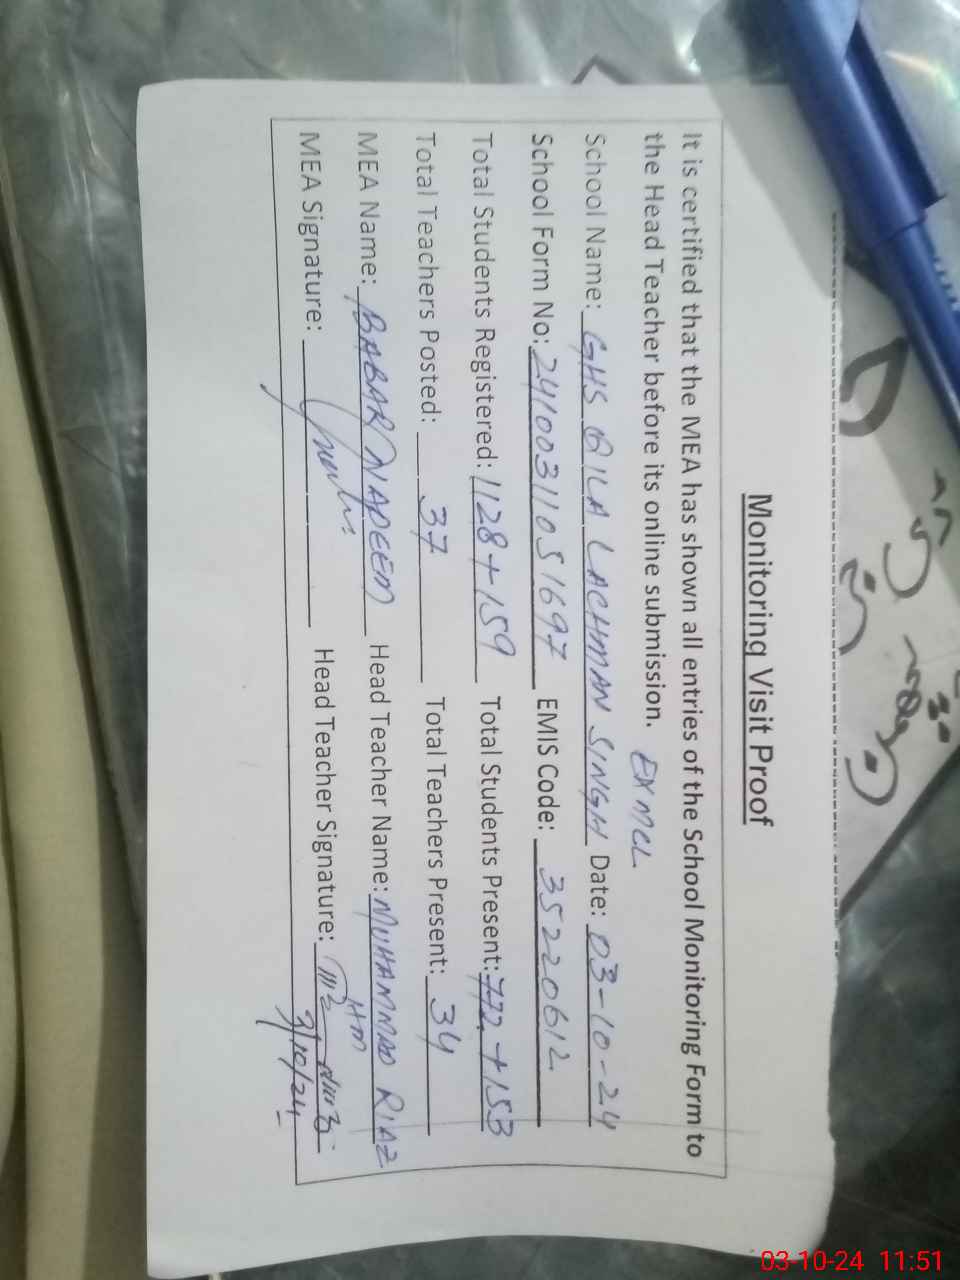 Monitoring Visit Proof
It is certified that the MEA has shown all entries of the School Monitoring Form to
the Head Teacher before its online submission. EX MCL
School Name: GHS QILA LACHMAN SINGH Date: 03-10-24
School Form No: 24100311051697 EMIS Code: 35220612
Total Students Registered: 1128+159 Total Students Present: 772+153
Total Teachers Posted: 37 Total Teachers Present: 34
MEA Name: BABAR NADEEM Head Teacher Name: MUHAMMAD RIAZ
HM
MEA Signature: Head Teacher Signature:
3/10/24
03-10-24 11:51